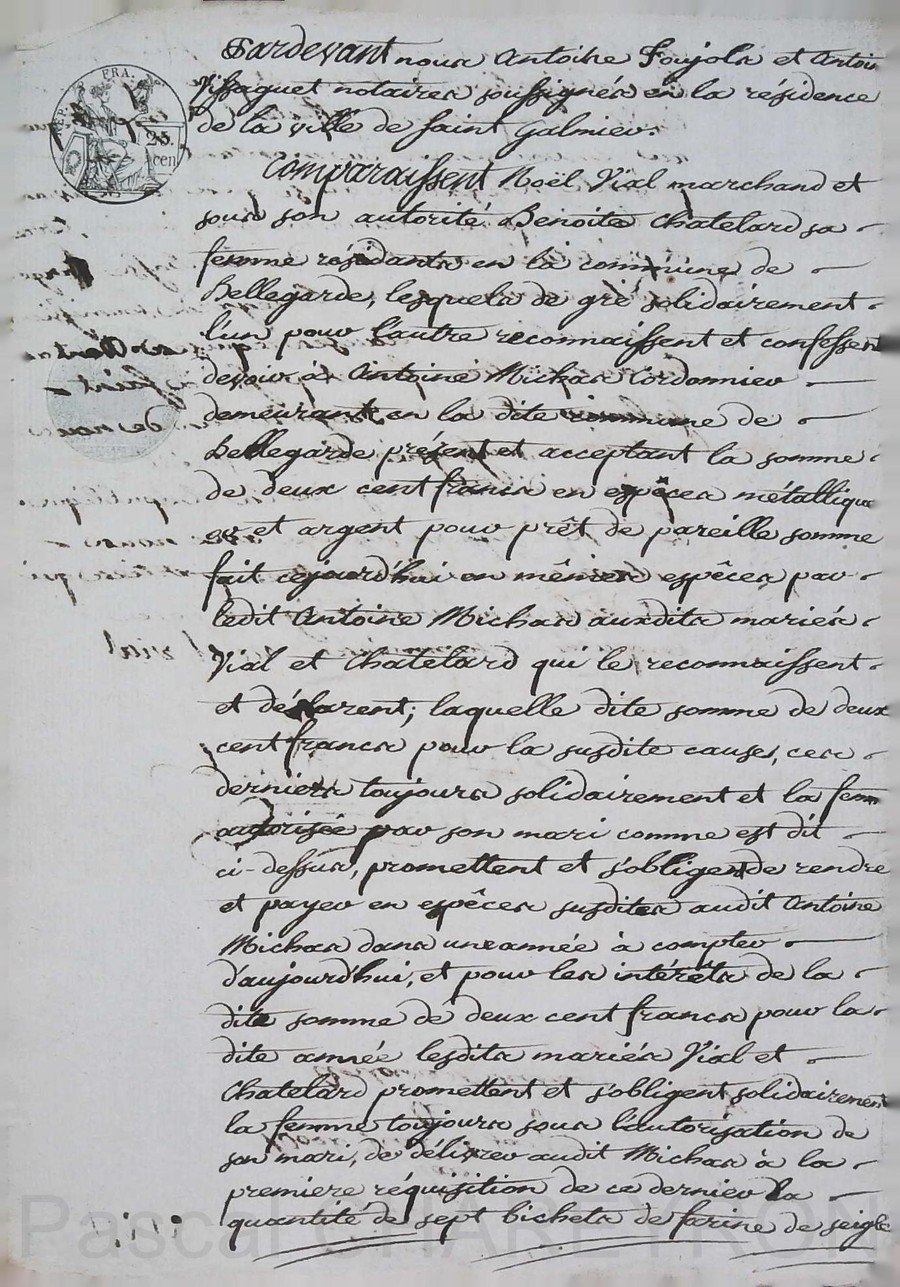 REP. FRA.
25.
cen
Pardevant nous Antoine Foujols et Antoi
Vissaguet notaires soussignés en la résidence
de la ville de Saint Galmier.
Comparaissent Noël Vial marchand et
sous son autorité Benoite Chatelard sa
femme résidants en la commune de
Bellegarde, lesquels de gré solidairement
l'un pour l'autre reconnaissent et confessent
devoir à Antoine Michas Cordonnier
demeurant en la dite commune de
Bellegarde présent et acceptant la somme
de deux cent francs en espêces métallique
et argent pour prêt de pareille somme
fait cejourd'hui en mêmes espêces par
ledit Antoine Michas auxdits mariés
Vial et Chatelard qui le reconnaissent
et déclarent; laquelle dite somme de deux
cent francs pour la susdite cause, ces
derniers toujours solidairement et la fem
autorisée par son mari comme est dit
ci-dessus, promettent et s'obligent de rendre
et payer en espêces susdites audit Antoine
Michas dans une année à compter
d'aujourd'hui, et pour les intérêts de la
dite somme de deux cent francs pour la
dite année lesdits mariés Vial et
Chatelard promettent et s'obligent solidairement
la femme toujours sous l'autorisation de
son mari, de délivrer audit Michas à la
premiere réquisition de ce dernier la
quantité de sept bichets de farine de seigle
Pascal CHAREYRON